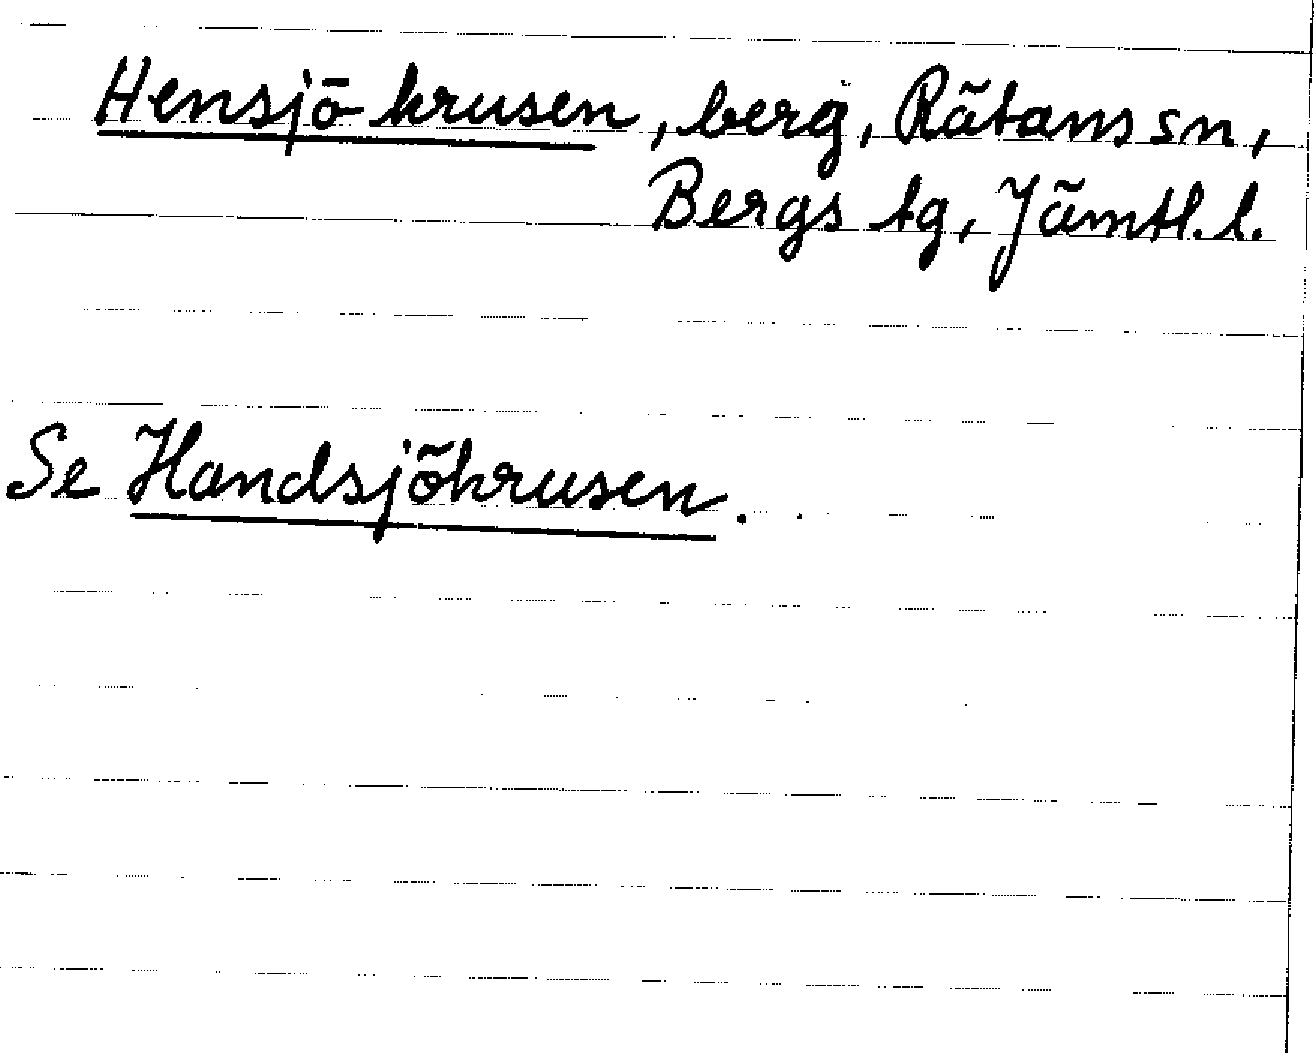 Hensjö krusen, berg, Rätans sn,
Bergs tg, Jämtl. l.
Se Handsjökrusen.